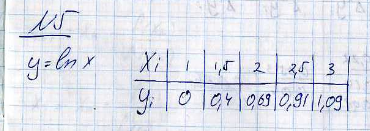 №5
y = ln x
Xi 1 1,5 2 2,5 3
Yi 0 0,4 0,69 0,91 1,09